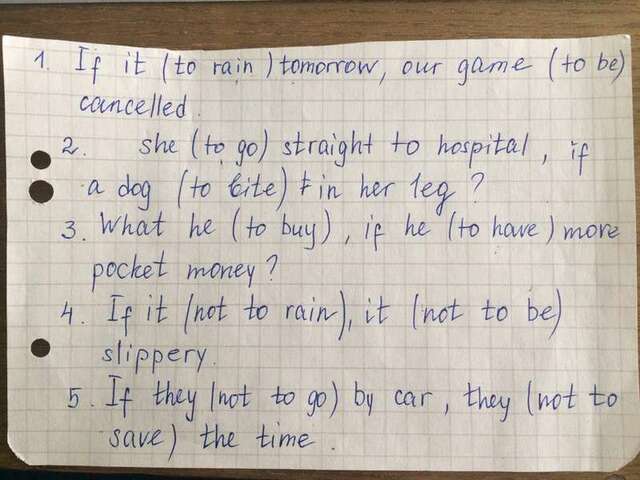 1. If it (to rain) tomorrow, our game (to be)
cancelled.
2. she (to go) straight to hospital, if
a dog (to bite) in her leg?
3. What he (to buy), if he (to have) more
pocket money?
4. If it (not to rain), it (not to be)
slippery.
5. If they (not to go) by car, they (not to
save) the time.